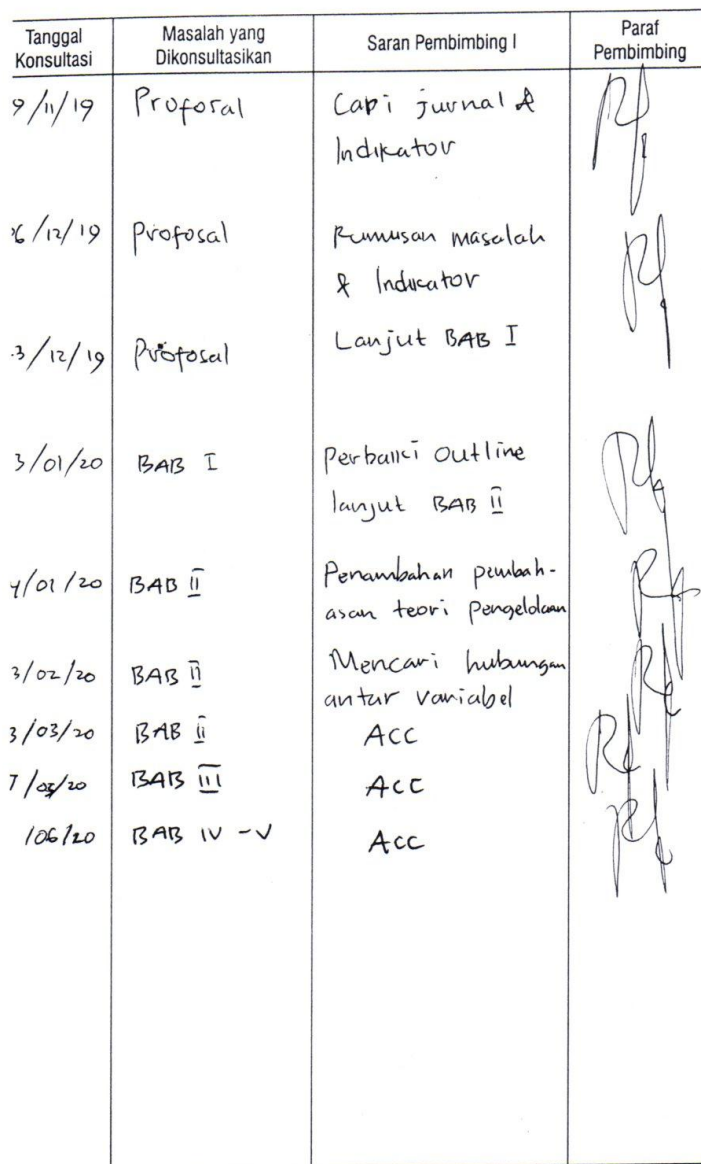 Tanggal Konsultasi | Masalah yang Dikonsultasikan | Saran Pembimbing I | Paraf Pembimbing
9/11/19 Proposal Cari jurnal &
Indikator
6/12/19 Proposal Rumusan masalah
& Indikator
3/12/19 Proposal Lanjut BAB I
3/01/20 BAB I Perbaiki Outline
lanjut BAB II
/01/20 BAB II Penambahan pembah-
asan teori Pengelolaan
3/02/20 BAB II Mencari hubungan
antar variabel
3/03/20 BAB II ACC
/03/20 BAB III ACC
/06/20 BAB IV - V ACC